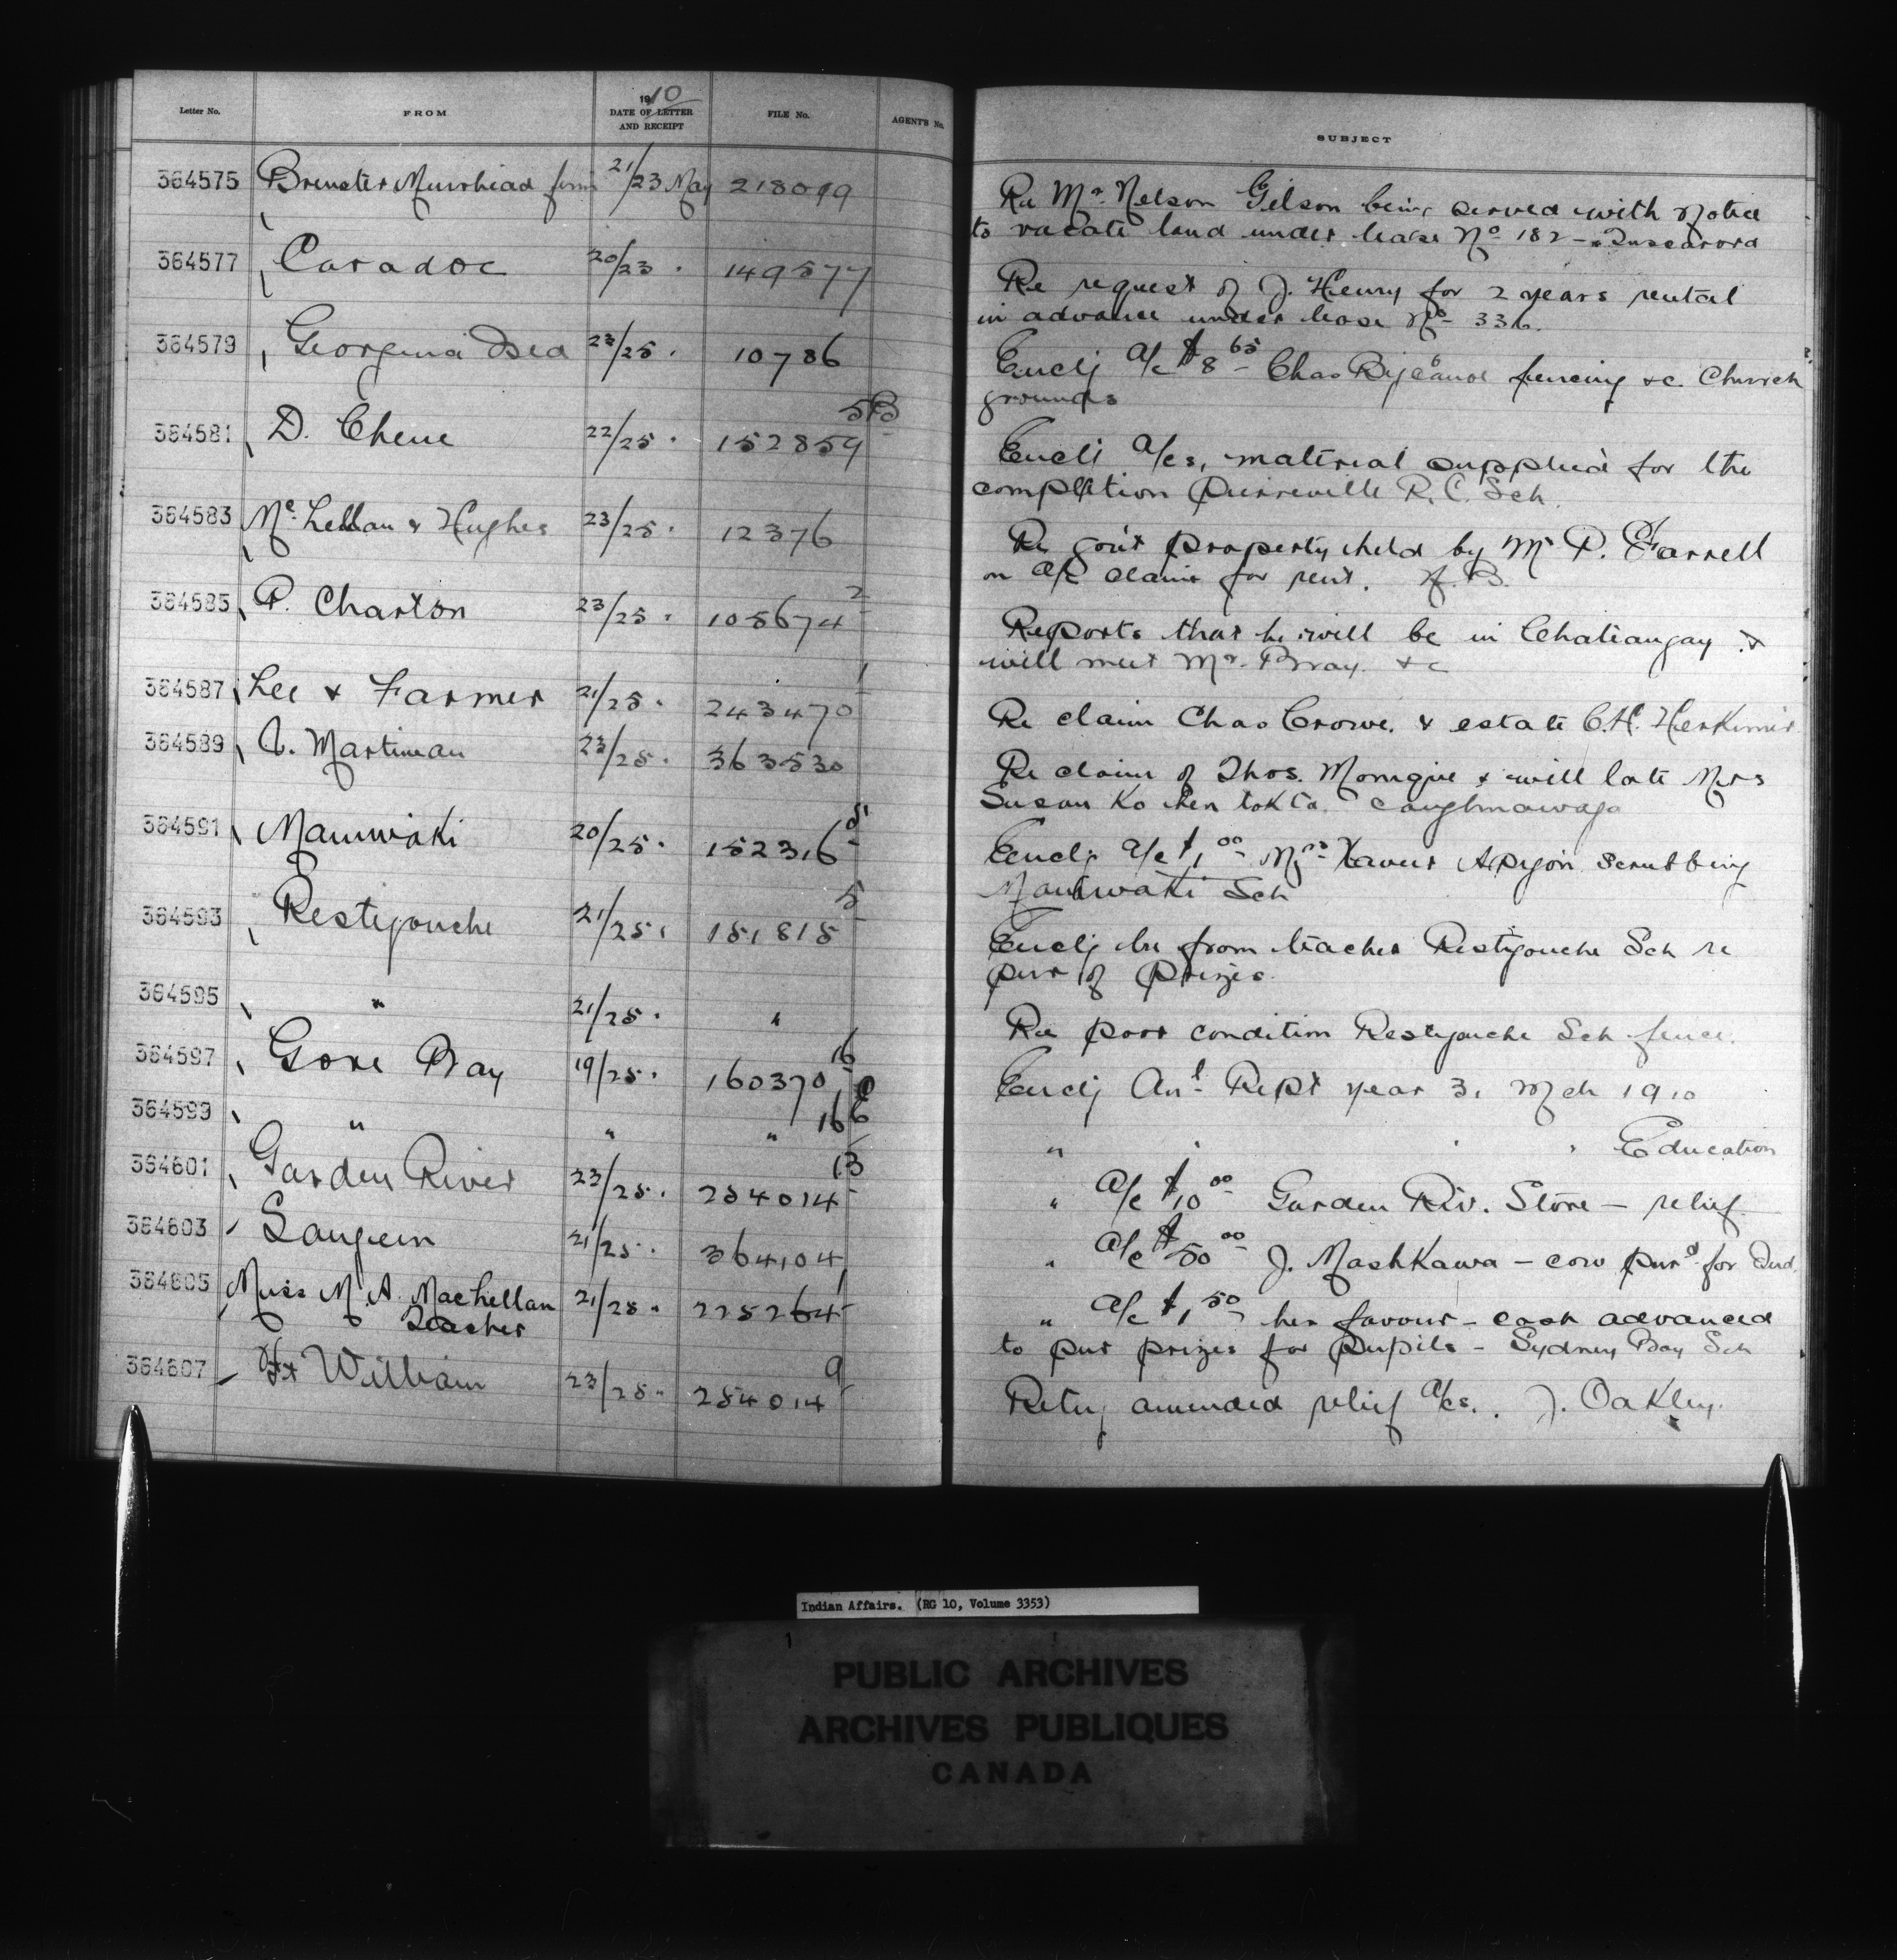 Letter No. FROM 1910 DATE OF LETTER AND RECEIPT FILE No. AGENT'S No. SUBJECT
364575 Brewster Muirhead firm 21/23 May 218099 Re Mr. Nelson Gilson being served with notice
to vacate land under lease No 182 - Tuscarora
364577 Caradoc 20/23 " 149577 Re request of J. Henry for 2 years rental
in advance under lease No 336.
364579 Georgina 23/25 " 10786 Enclg a/c $8 65 Chas fencing &c. Church
grounds
364581 D. Chene 22/25 " 152859 5B Enclg a/cs, material supplied for the
completion R.C. Sch.
364583 Mc Lellan & Hughes 23/25 " 12376 Re gov't property held by Mr P. Farrell
on a/c claim for rent. N.B.
364585 P. Charton 23/25 " 105674 2 Reports that he will be in Chateaugay &
will meet Mr. Bray &c
364587 Lee & Farmer 21/25 " 243470 1 Re claim Chas Crowe. & estate C.H. Herkimer
364589 Martineau 23/25 " 363530 Re claim of Thos. Monique & will late Mrs
Susan Caughnawaga
364591 Maniwaki 20/25 " 152316 5 Enclg a/c $1 00 Mrs Xavier scrubbing
Maniwaki Sch
364593 Restigouche 21/25 " 151815 5 Enclg ltr from teacher Restigouche Sch re
pur of prizes.
364595 " 21/25 " " Re poor condition Restigouche Sch fence.
364597 Gore Bay 19/25 " 160370 16 Enclg Anl Rept year 31 Mch 1910
364599 " " " 16 " " " " Education
364601 Garden River 23/25 " 254014 13 " a/c $10 00 Garden Riv. Store - relief
364603 Saugeen 21/25 " 364104 " a/c $50 00 J. Mashkawa - cow purd for Ind.
364605 Miss M. A. MacLellan 21/25 " 225264 1 " a/c $1 50 her favour - cash advanced
Teacher to pur prizes for pupils - Sydney Bay Sch
364607 Ft William 23/25 " 254014 9 Retg amended relief a/cs. J. Oakley.
Indian Affairs. (RG 10, Volume 3353)
PUBLIC ARCHIVES
ARCHIVES PUBLIQUES
CANADA